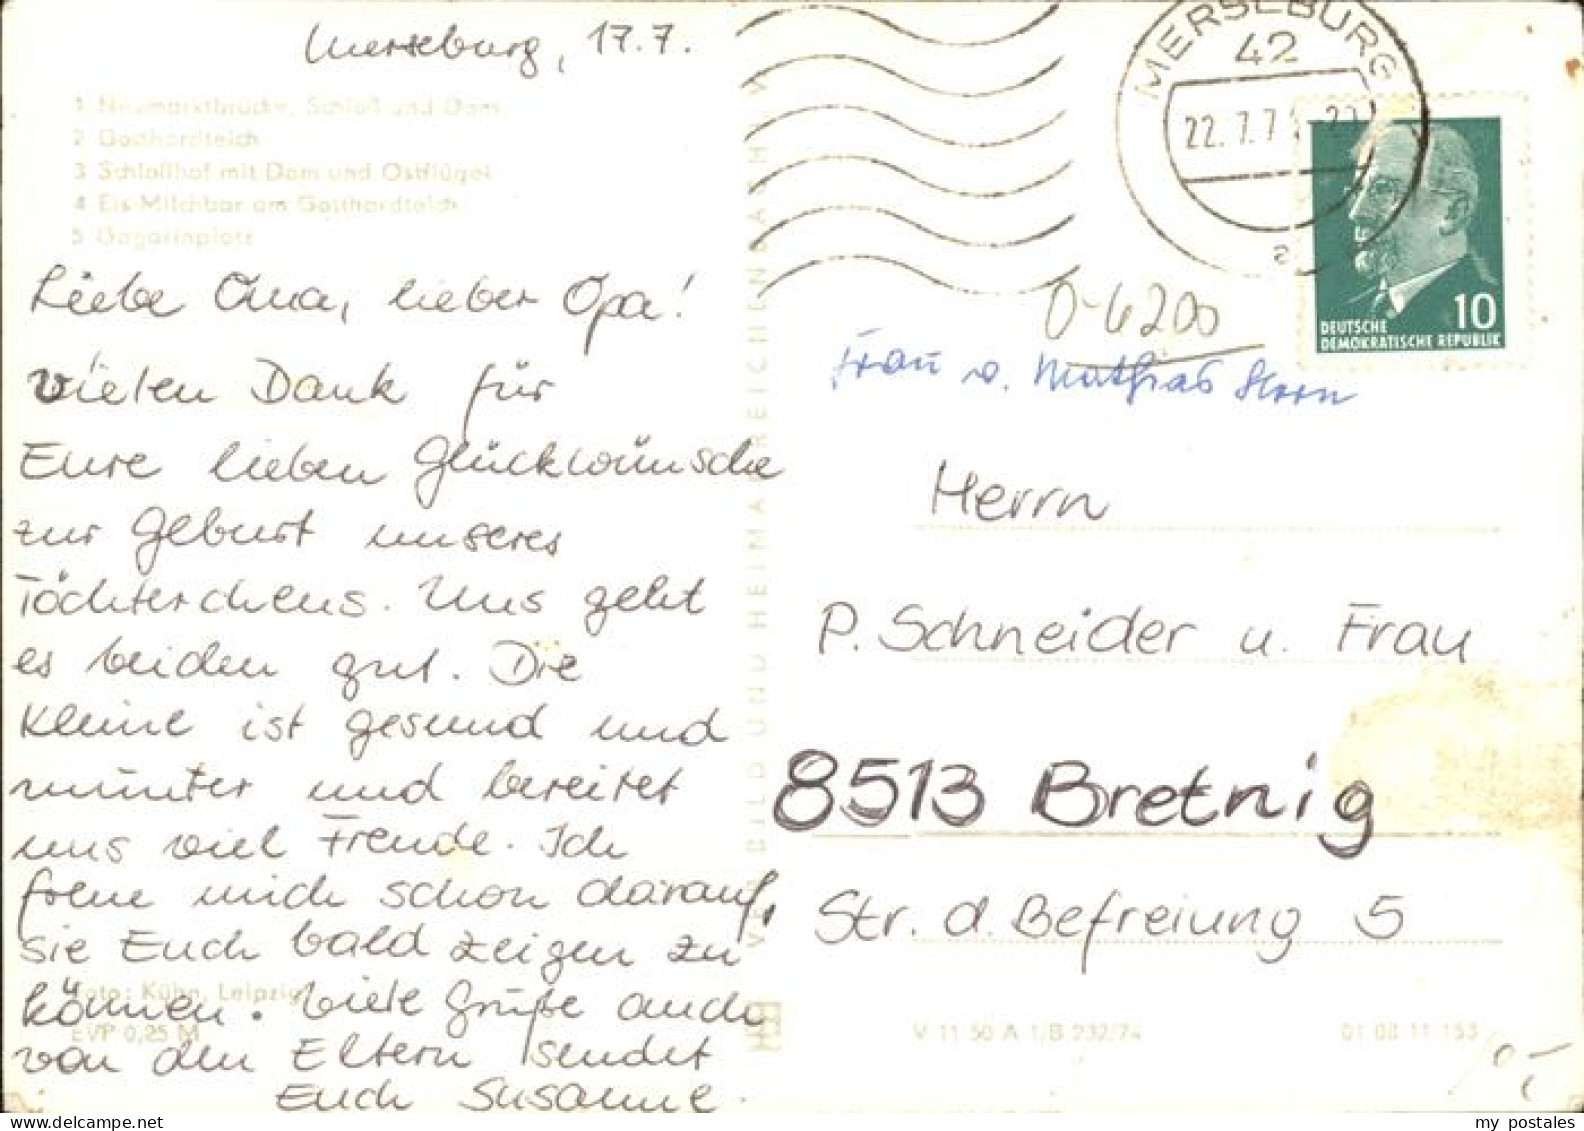 Merseburg, 17.7.
1 Neumarktbrücke, Schloß und Dom
2 Gotthardteich
3 Schloßhof mit Dom und Ostflügel
4 Eis-Milchbar am Gotthardteich
5 Gagarinplatz
Liebe Oma, lieber Opa!
Vielen Dank für
Eure lieben Glückwünsche
zur Geburt unseres
Töchterchens. Uns geht
es beiden gut. Die
Kleine ist gesund und
munter und bereitet
uns viel Freude. Ich
freue mich schon darauf,
sie Euch bald zeigen zu
können. Viele Grüße auch
von den Eltern sendet
Euch Susanne
Foto: Kühn, Leipzig
EVP 0,25 M
VERLAG BILD UND HEIMAT REICHENBACH V
MERSEBURG
42
22.7.7
a
10
DEUTSCHE
DEMOKRATISCHE REPUBLIK
O-4200
Frau v.
Herrn
P. Schneider u. Frau
8513 Bretnig
Str. d. Befreiung 5
V 11 50 A 1/B 232/74
01 08 11 153
my postales